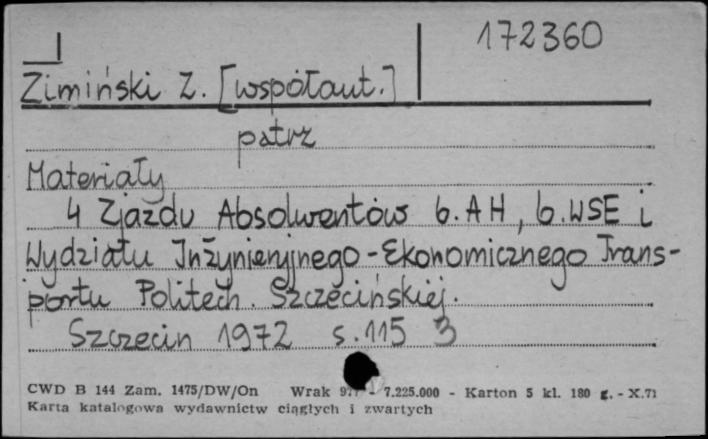 172360
Zimiński Z. [współaut.]
patrz
Materiały
4 Zjazdu Absolwentów b. AH, b. WSE i
Wydziału Inżynieryjnego-Ekonomicznego Trans-
portu Politech. Szczecińskiej.
Szczecin 1972 s. 115 3
CWD B 144 Zam. 1475/DW/On Wrak - 7.225.000 - Karton 5 kl. 180 g. - X.71
Karta katalogowa wydawnictw ciągłych i zwartych